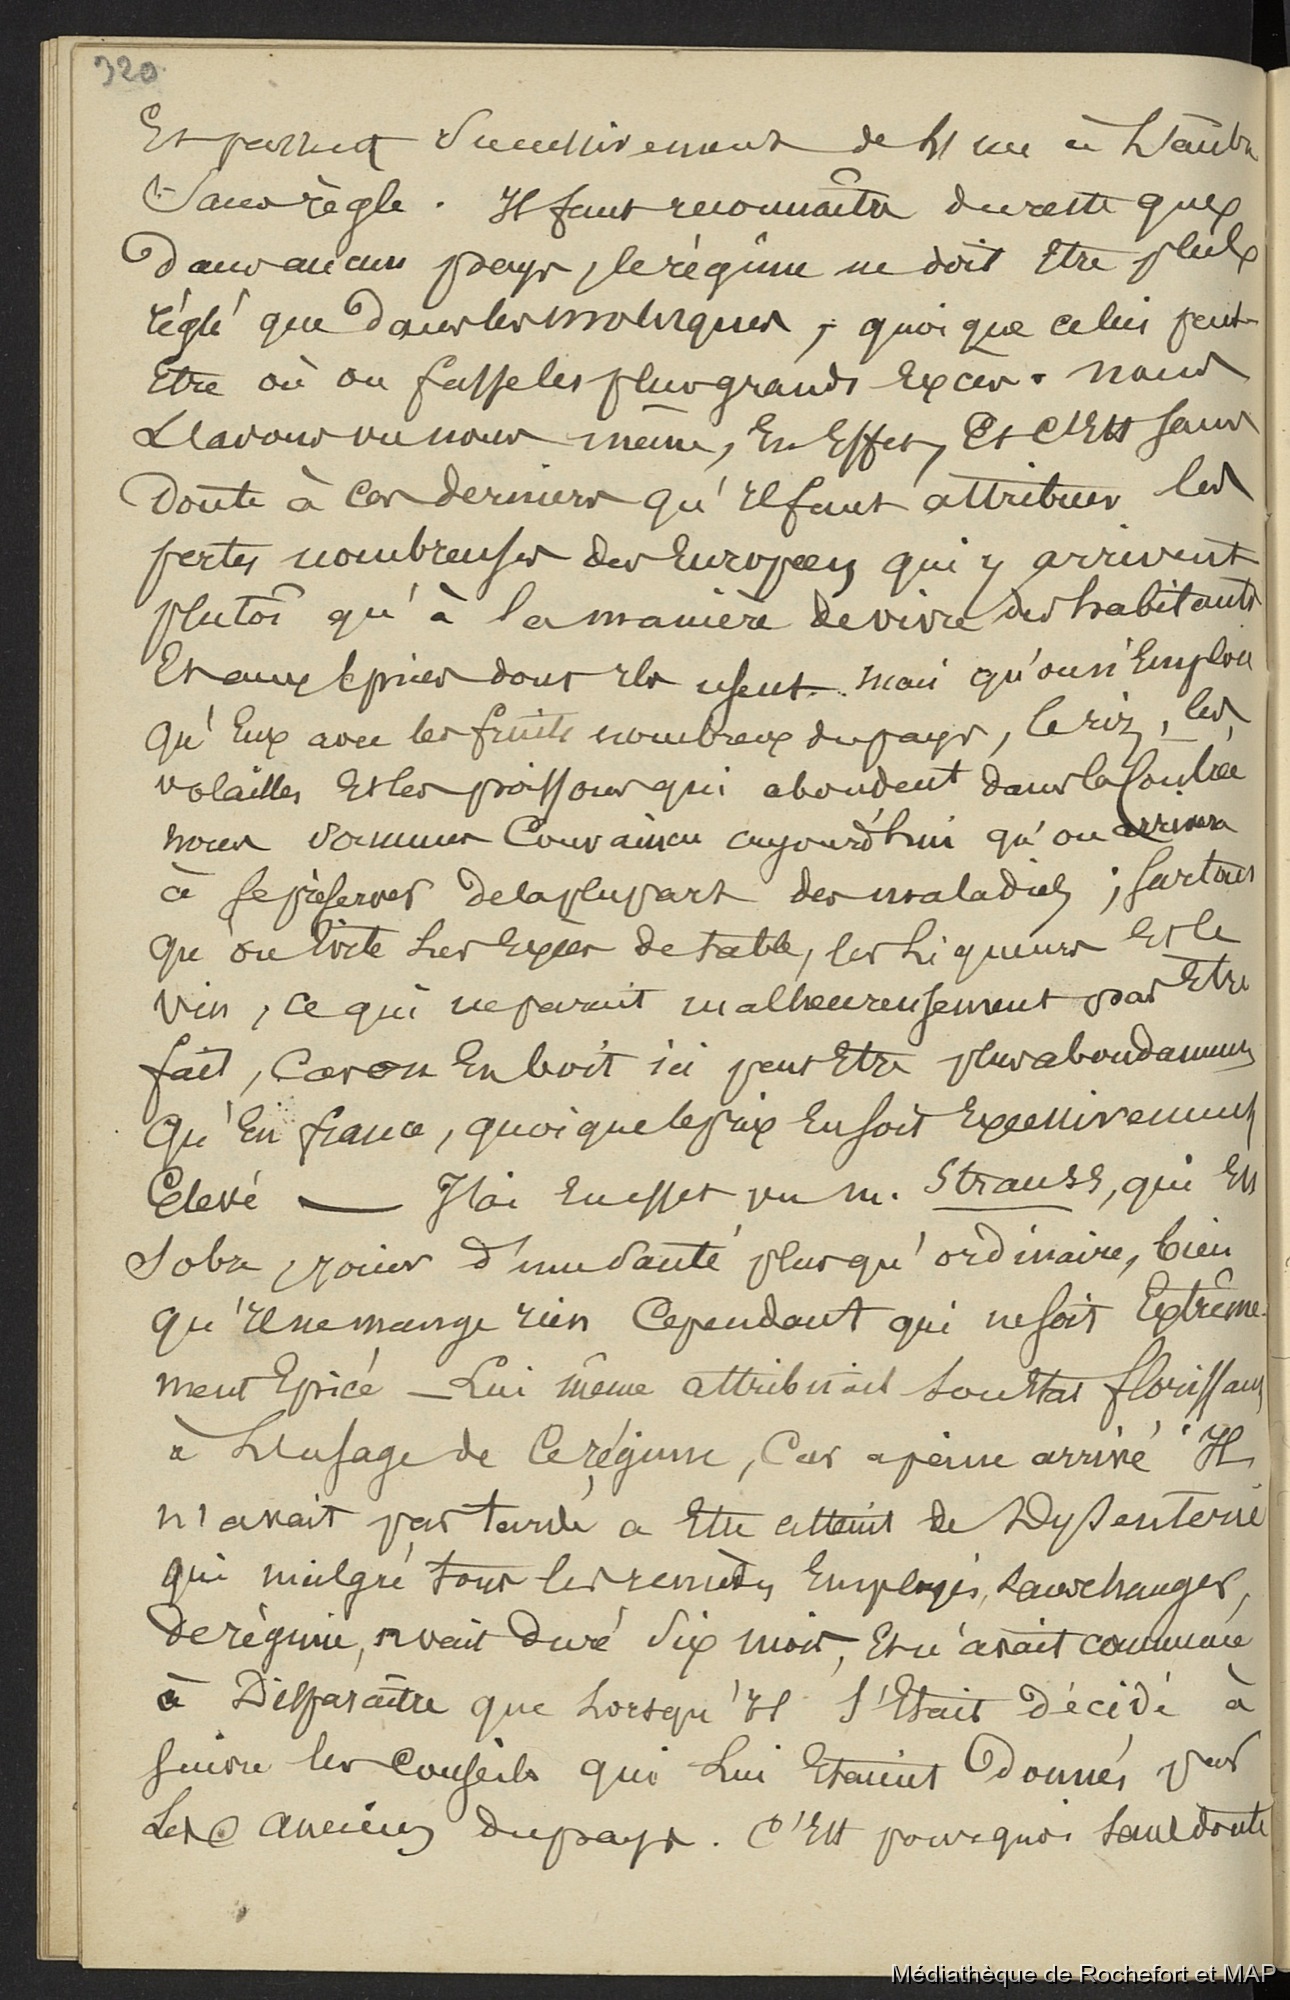 320
Et passent successivement de l'une à l'autre
Sans règle. Il faut reconnaître du reste que
dans aucun pays, le régime ne doit Etre plus
réglé que dans les moluques, quoique celui peut-
Etre où on fasse les plus grands Excès. nous
L'avons vu nous même, En Effet, Et c'Est sans
Doute à ces derniers qu'il faut attribuer les
pertes nombreuses des Européens qui y arrivent
plutôt qu'à la manière de vivre des habitants
Et aux Epices dont ils usent. mais qu'on n'Emploie
qu'Eux avec les fruits nombreux du pays, le riz, les
volailles Et les poissons qui abondent dans la Contrée
nous sommes Convaincu aujourd'hui qu'on arrivera
à se préserver de la plupart des maladies ; surtout
qu'on évite Les Excès de table, les Liqueurs Et le
vin, ce qui ne parait malheureusement pas Etre
fait, Car on En boit ici peut Etre plus abondamment
Qu'En france, quoique le prix En soit Excessivement
Elevé — J'ai En effet vu m. Strauss, qui Est
Sobre, jouir d'une Santé plus qu'ordinaire, bien
qu'il ne mange rien Cependant qui ne soit Extrême-
ment Epicé — Lui même attribuait Son Etat florissant
à L'usage de Ce régime, Car a peine arrivé Il
n'avait pas tardé a Etre atteint de Dyssenterie
qui malgré tous les remèdes Employés, Sans changer,
de régime, avait duré Six mois, Et n'avait commencé
à Disparaître que Lorsqu'Il S'Etait Décidé à
suivre les Conseils qui Lui Etaient Donnés par
Les anciens du pays. C'Est pourquoi Sans doute
Médiathèque de Rochefort et MAP